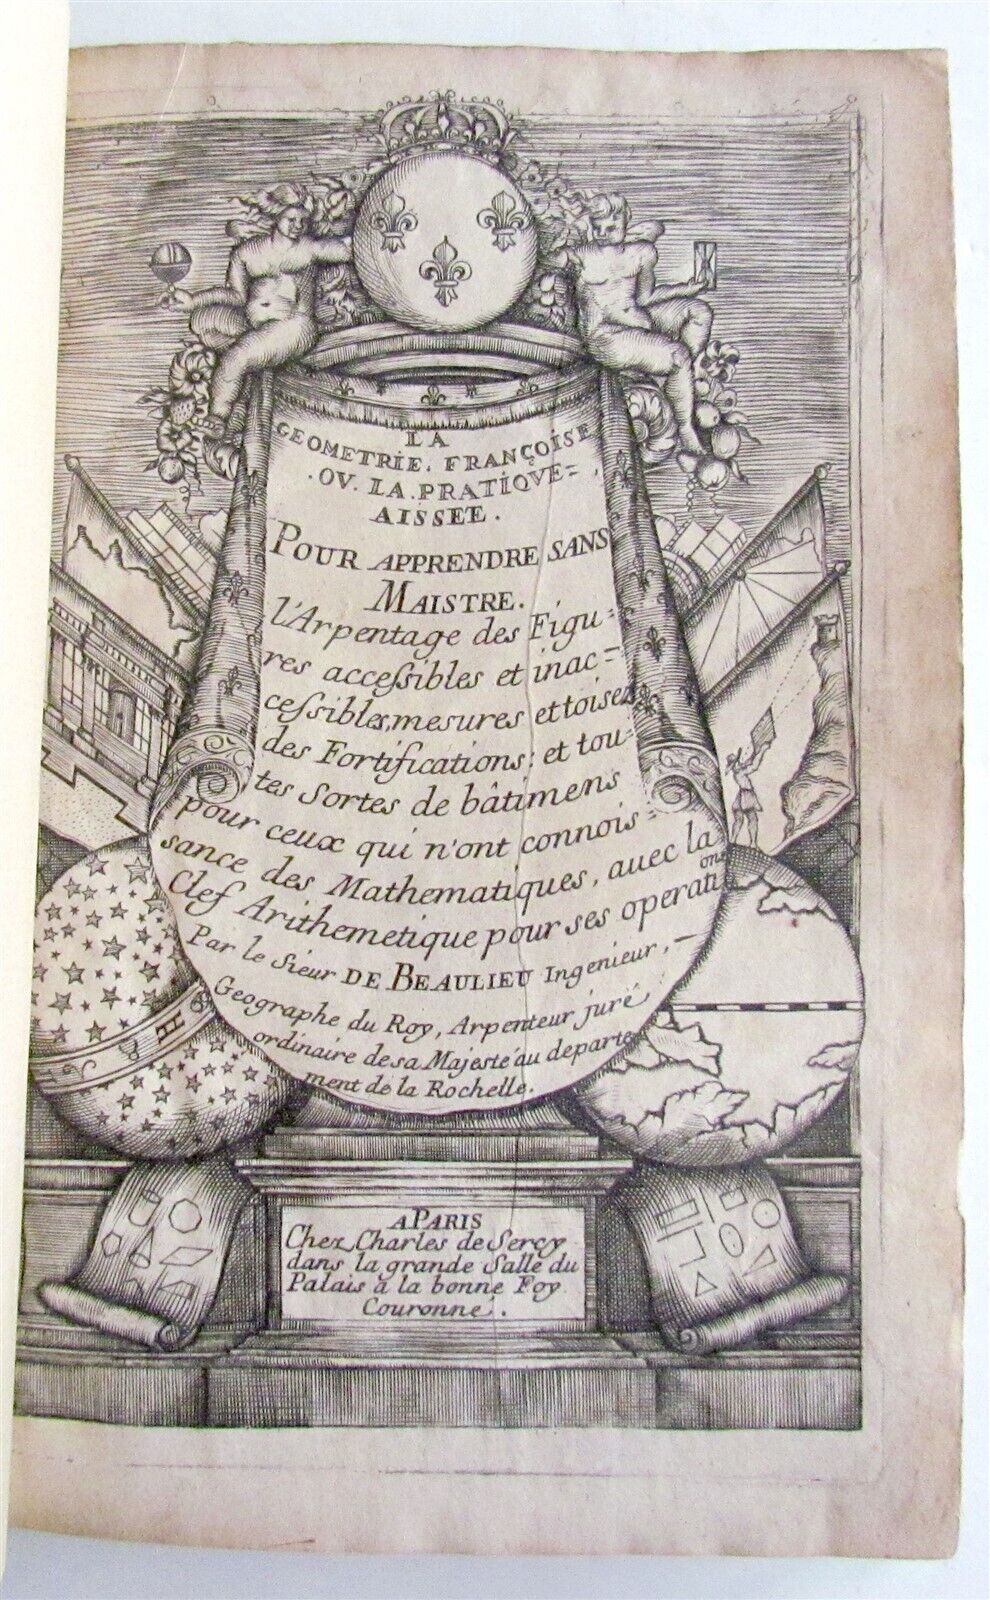 LA
GEOMETRIE. FRANÇOISE
.OV. LA. PRATIQVE=
AISSEE.
POUR APPRENDRE SANS
MAISTRE.
l'Arpentage des Figu=
res accessibles et inac=
cessibles, mesures et toisez
des Fortifications; et tou=
tes Sortes de bâtimens
pour ceux qui n'ont connois=
sance des Mathematiques, auec la
Clef Arithemetique pour ses operati
ons
Par le Sieur DE BEAULIEU Ingenieur,
Geographe du Roy, Arpenteur juré
ordinaire de sa Majesté au departe
ment de la Rochelle.
A PARIS
Chez Charles de Sercy
dans la grande Salle du
Palais à la bonne Foy
Couronné.